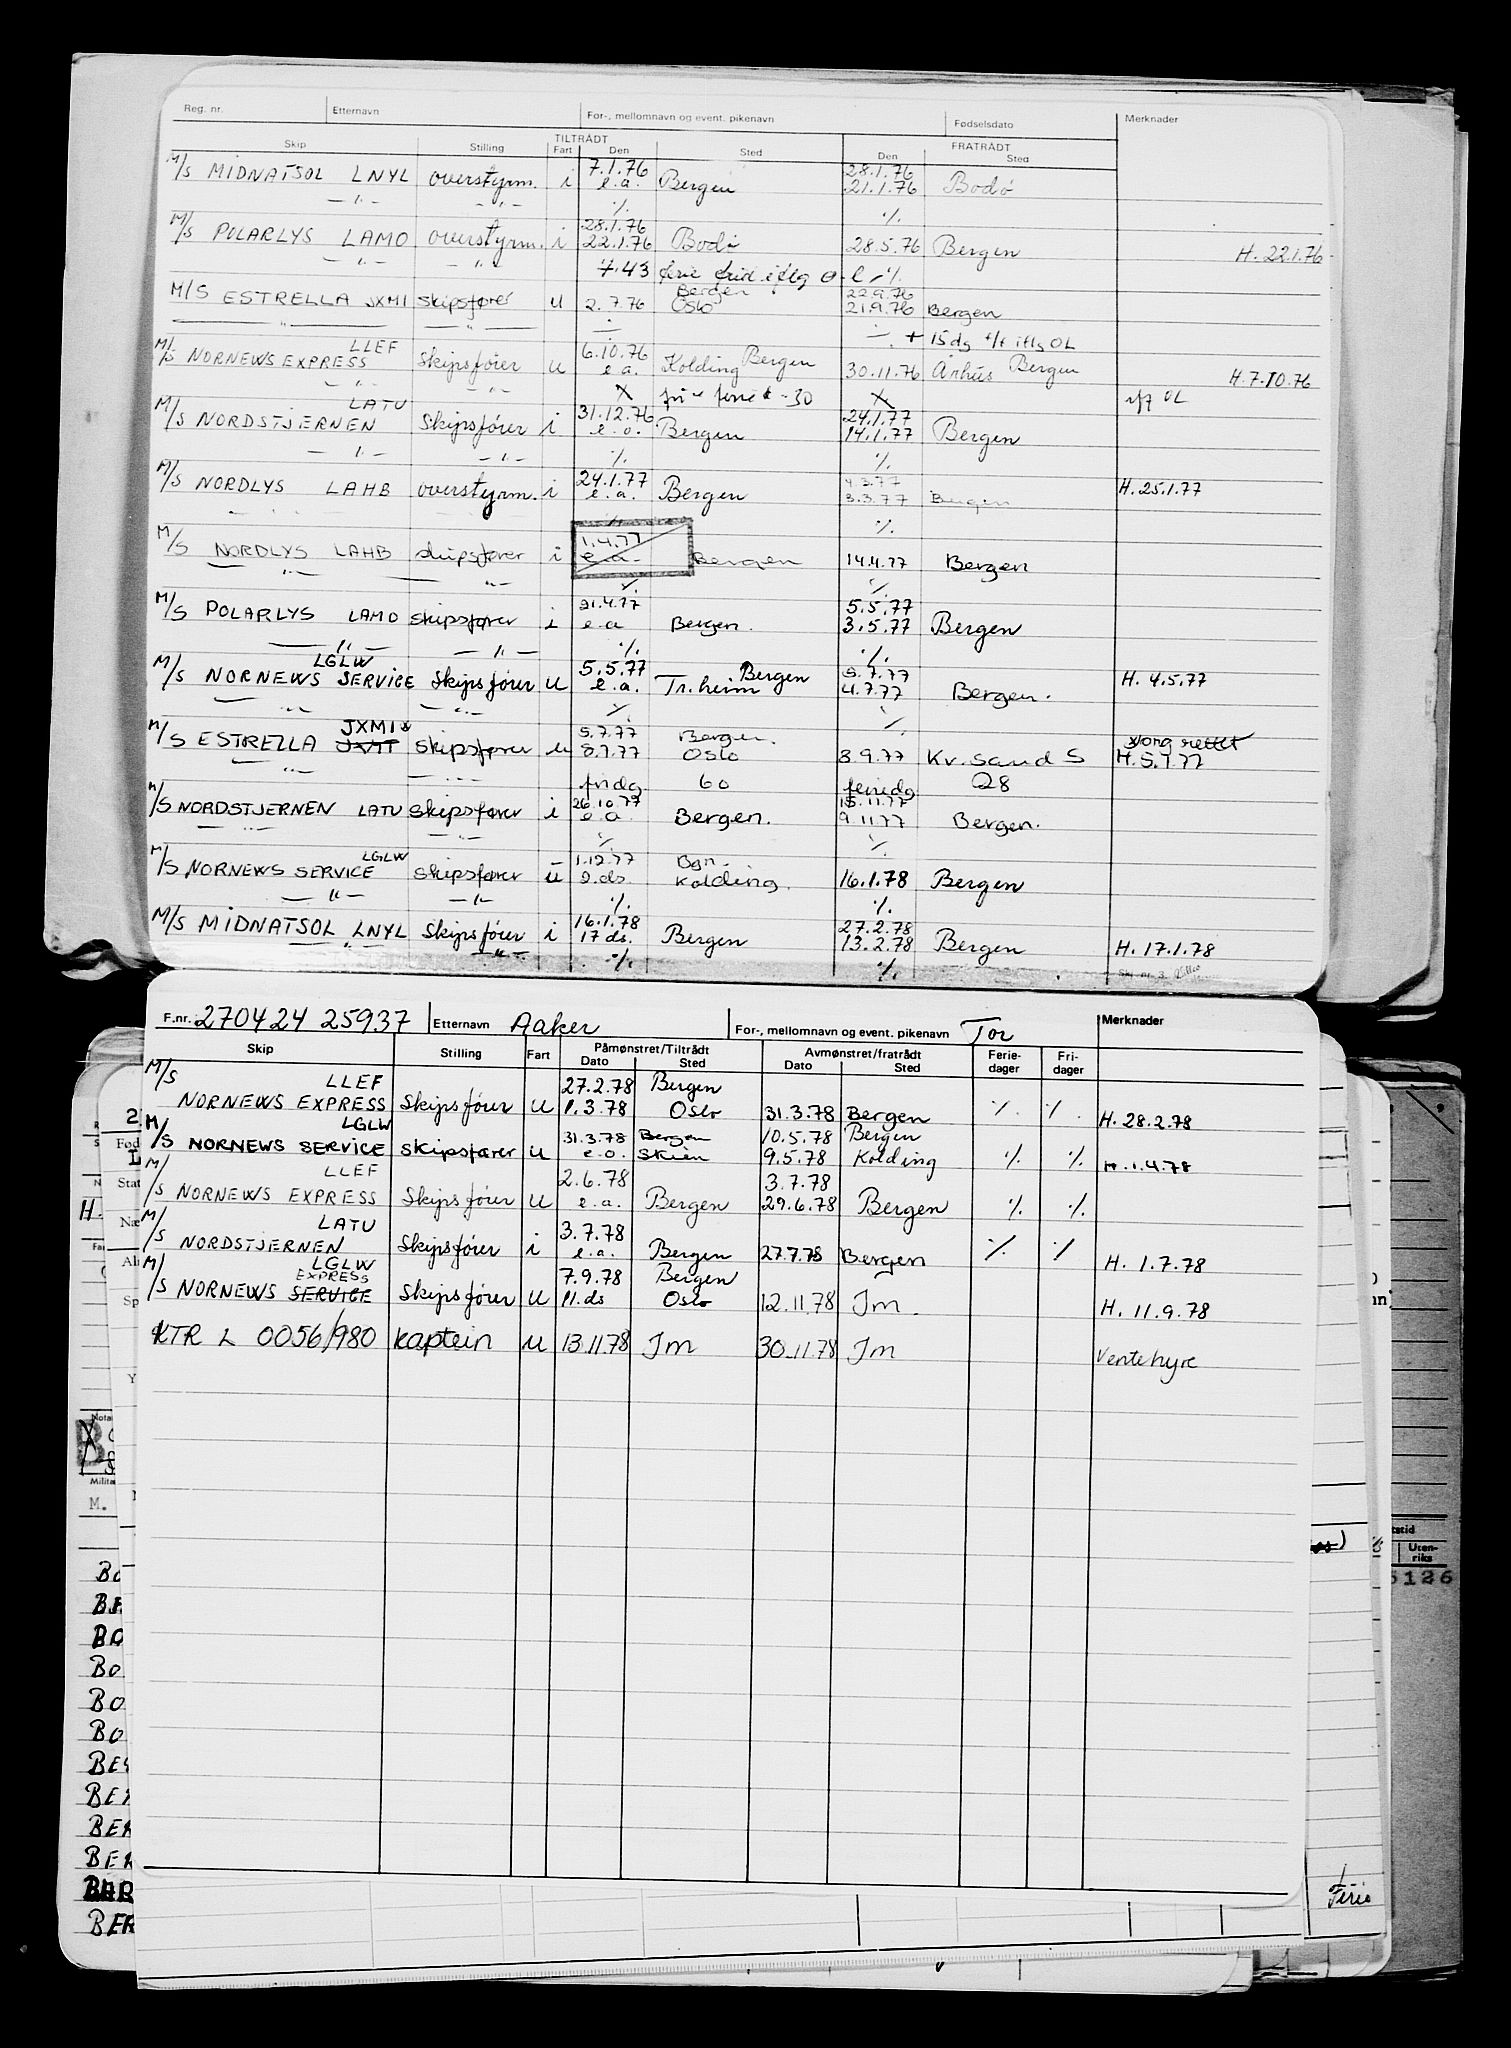 Reg. nr. Etternavn For-, mellomnavn og event. pikenavn Fødselsdato Merknader
TILTRÅDT FRATRÅDT
Skip Stilling Fart Den Sted Den Sted
7.1.76 28.1.76
M/S MIDNATSOL LNYL overstyrm. i e.a. Bergen 21.1.76 Bodø
— " — — " — % %
28.1.76
M/S POLARLYS LAMO overstyrm. i 22.1.76 Bodø 28.5.76 Bergen H. 22.1.76
— " — — " —
Bergen 22.9.76
M/S ESTRELLA JXMI skipsfører u 2.7.76 Oslo 21.9.76 Bergen
— " — — " — % + 15 dg
LLEF 6.10.76
M/S NORNEWS EXPRESS Skipsfører u e.a. Kolding Bergen 30.11.76 Århus Bergen H. 7.10.76
— " — — " —
LATU 31.12.76 24.1.77
M/S NORDSTJERNEN Skipsfører i e.a. Bergen 14.1.77 Bergen
— " — — " — % %
24.1.77 4.3.77
M/S NORDLYS LAHB overstyrm. i e.a. Bergen 3.3.77 Bergen H. 25.1.77
% %
1.4.77
M/S NORDLYS LAHB skipsfører i e.a. Bergen 14.4.77 Bergen
— " — — " — % %
21.4.77 5.5.77
M/S POLARLYS LAMO skipsfører i e.a Bergen. 3.5.77 Bergen
— " — — " — % %
LGLW 5.5.77 Bergen 5.7.77
M/S NORNEWS SERVICE Skipsfører u e.a. Tr.heim 4.7.77 Bergen. H. 4.5.77
— " — — " — % %
JXMI 5.7.77 Bergen.
M/S ESTRELLA skipsfører u 8.7.77 Oslo 8.9.77 Kv. sand S H. 5.7.77
— " — — " — fridg 60 feriedg 28
26.10.77 15.11.77
M/S NORDSTJERNEN LATU skipsfører i e.a. Bergen. 9.11.77 Bergen.
— " — — " — % %
LGLW 1.12.77 Bgn.
M/S NORNEWS SERVICE skipsfører u 2.ds. Kolding. 16.1.78 Bergen
— " — — " — % %
16.1.78 27.2.78
M/S MIDNATSOL LNYL Skipsfører i 17 ds. Bergen 13.2.78 Bergen H. 17.1.78
— " — — " — % %
F.nr. 270424 25937 Etternavn Aaker For-, mellomnavn og event. pikenavn Tor Merknader
Skip Stilling Fart Påmønstret/Tiltrådt Avmønstret/fratrådt Ferie- Fri-
Dato Sted Dato Sted dager dager
M/S LLEF 27.2.78 Bergen
NORNEWS EXPRESS Skipsfører u 1.3.78 Oslo 31.3.78 Bergen % % H. 28.2.78
M/S LGLW 31.3.78 Bergen 10.5.78 Bergen
NORNEWS SERVICE Skipsfører u e.a. Skien 9.5.78 Kolding % % H. 1.4.78
M/S LLEF 2.6.78 3.7.78
NORNEWS EXPRESS Skipsfører u e.a. Bergen 29.6.78 Bergen % %
M/S LATU 3.7.78
NORDSTJERNEN Skipsfører i e.a. Bergen 27.7.78 Bergen % % H. 1.7.78
M/S LGLW
EXPRESS 7.9.78 Bergen
NORNEWS SERVICE Skipsfører u 11.ds Oslo 12.11.78 Jm. H. 11.9.78
KTR L 0056/980 kaptein u 13.11.78 Jm 30.11.78 Jm Ventehyre
Uten-
riks
5126
Ferie